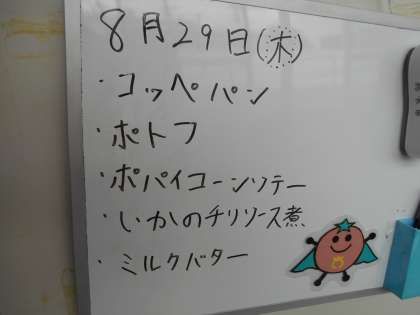 8月29日(木)
・コッペパン
・ポトフ
・ポパイコーンソテー
・いかのチリソース煮
・ミルクバター